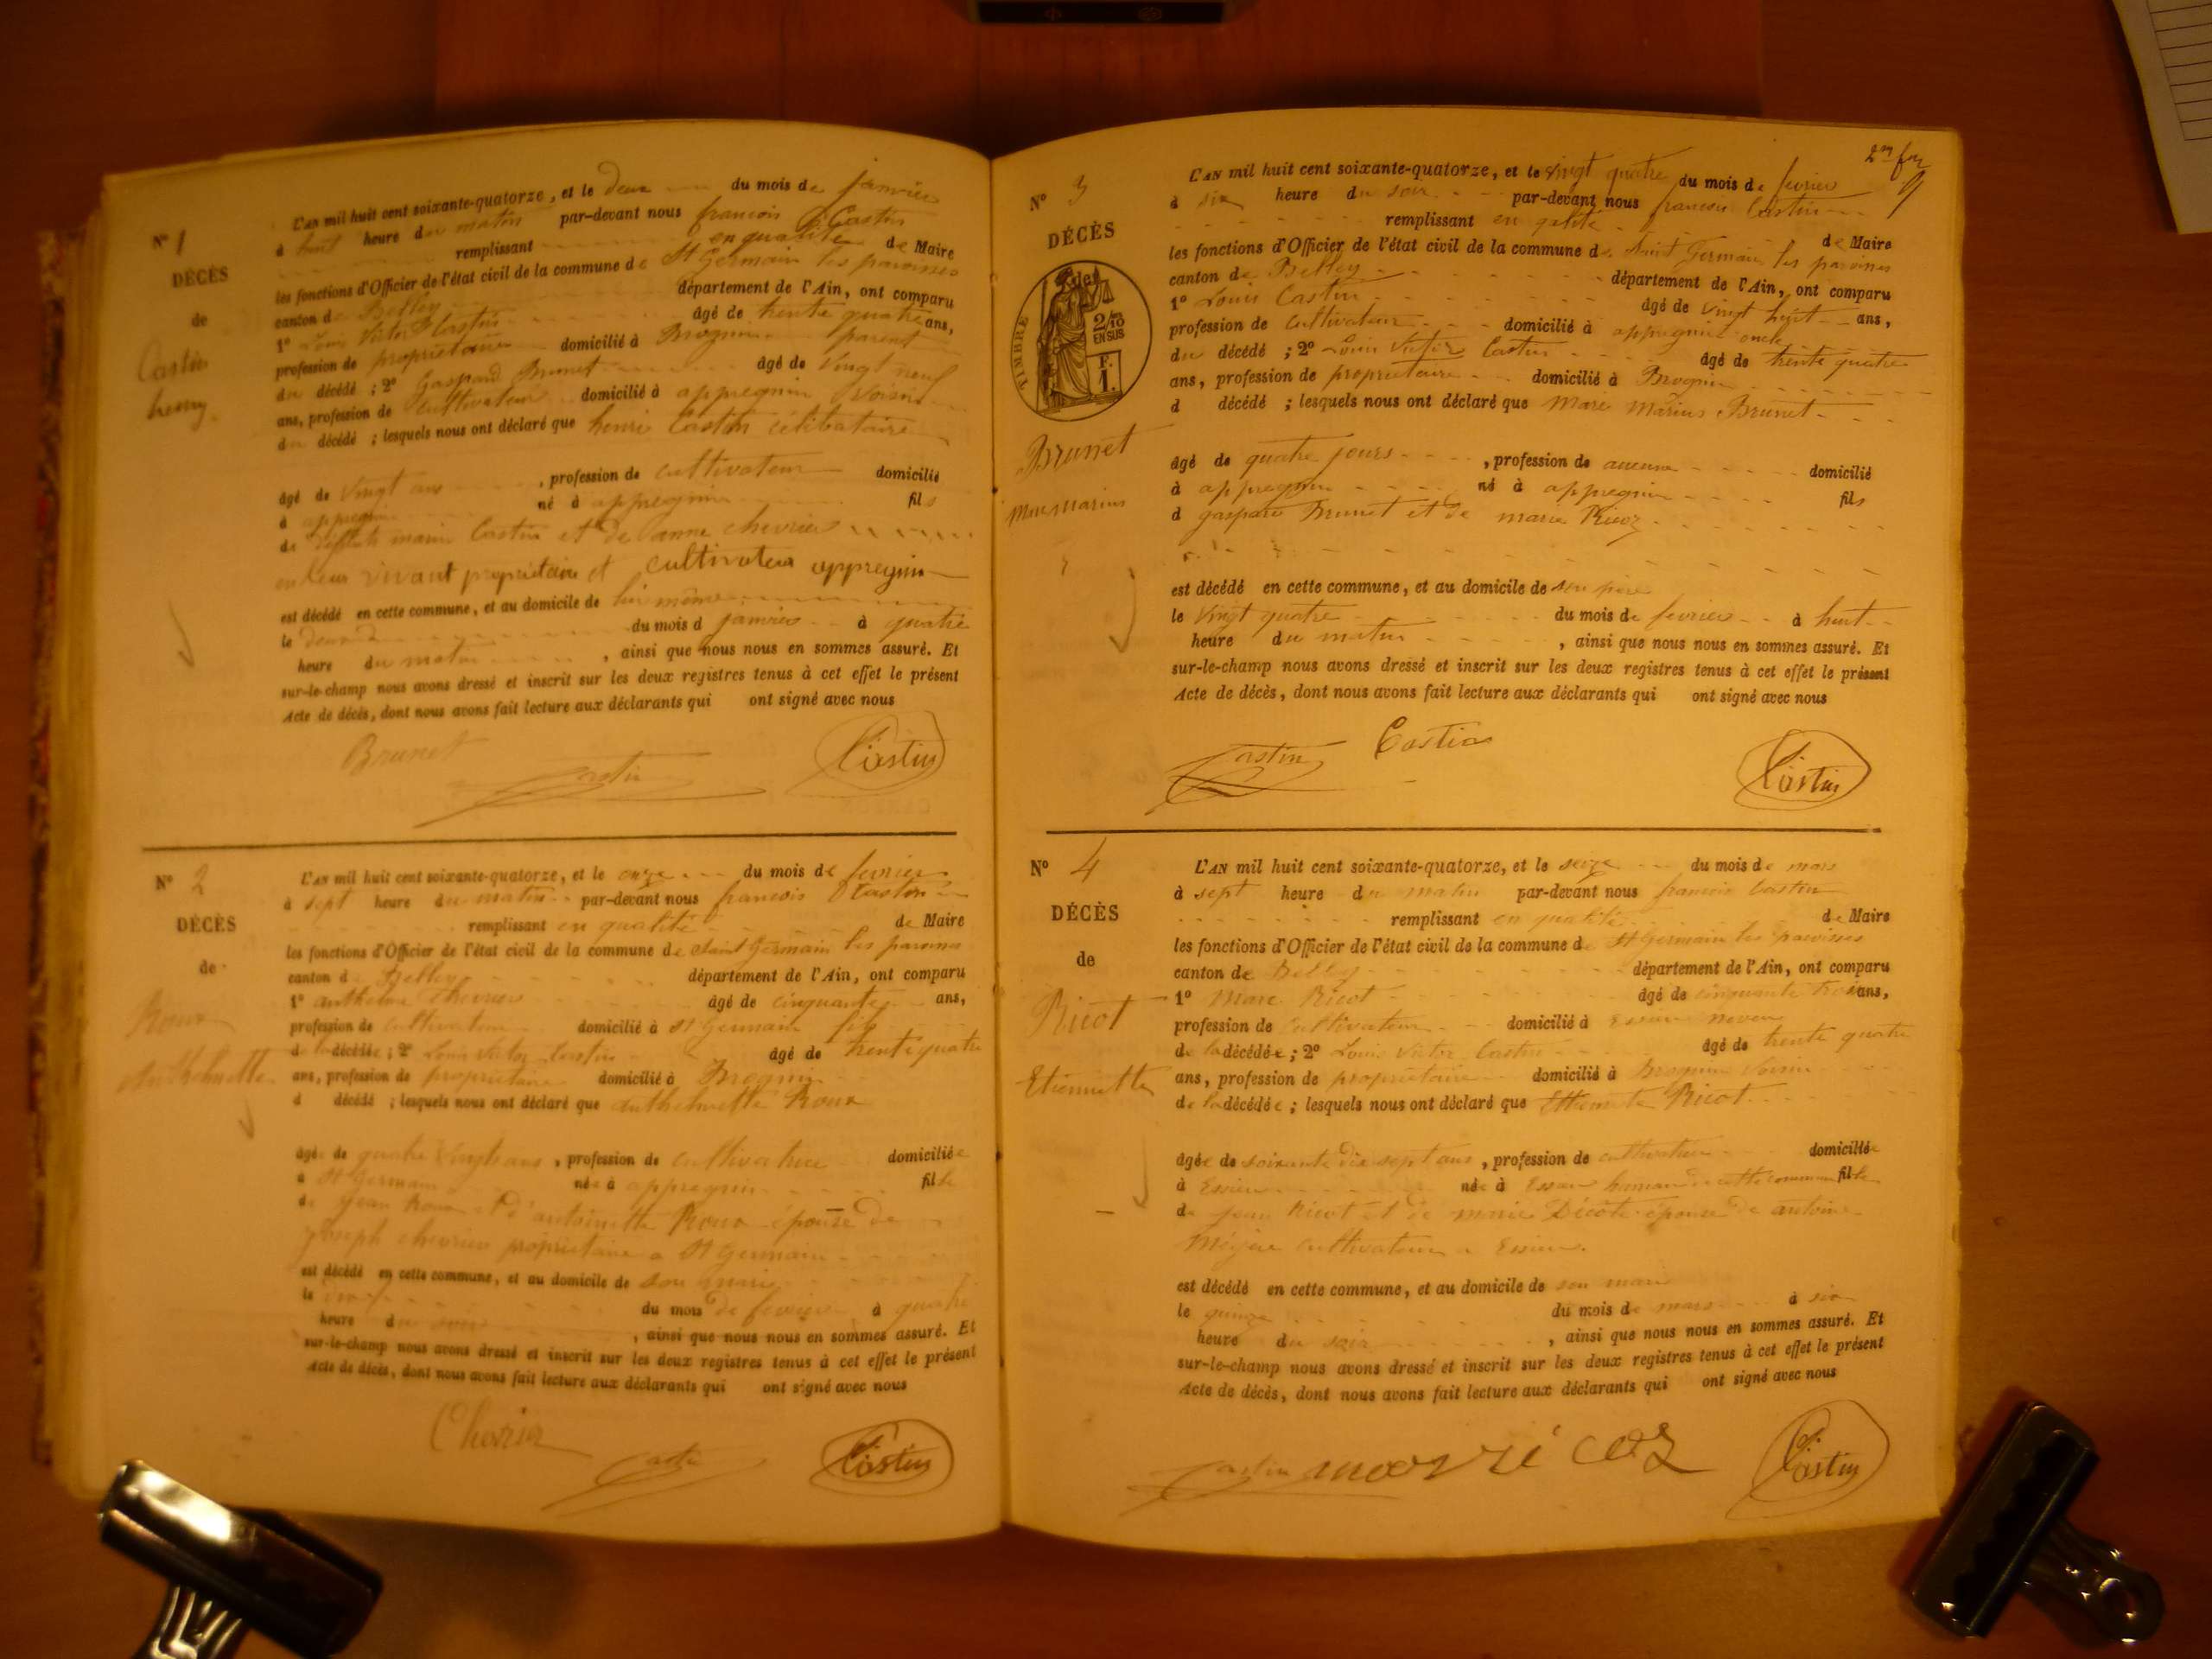 N° 1
DÉCÈS
de
Castin
henry
L'AN mil huit cent soixante-quatorze, et le deux du mois de janvier
à huit heure du matin par-devant nous francois Castin
remplissant en qualité de Maire
les fonctions d'Officier de l'état civil de la commune de St Germain les paroisses
canton de Belley département de l'Ain, ont comparu
1° Louis Victor Castin âgé de trente quatre ans,
profession de propriétaire domicilié à Brognin parent
du décédé ; 2° Gaspard Brunet âgé de vingt neuf
ans, profession de cultivateur domicilié à appregnin Voisin
du décédé ; lesquels nous ont déclaré que henri Castin célibataire
âgé de vingt ans , profession de cultivateur domicilié
à appregnin né à appregnin fils
de marin Castin et de anne chevrier
en leur vivant propriétaire et cultivateur appregnin
est décédé en cette commune, et au domicile de lui même
le deux du mois d janvier à quatre
heure du matin , ainsi que nous nous en sommes assuré. Et
sur-le-champ nous avons dressé et inscrit sur les deux registres tenus à cet effet le présent
Acte de décès, dont nous avons fait lecture aux déclarants qui ont signé avec nous
Brunet Castin Castin
N° 2
DÉCÈS
de
Roux
Anthelmette
L'AN mil huit cent soixante-quatorze, et le onze du mois de fevrier
à sept heure du matin par-devant nous francois Castin
remplissant en qualité de Maire
les fonctions d'Officier de l'état civil de la commune de Saint Germain les paroisses
canton d Belley département de l'Ain, ont comparu
1° anthelme chevrier âgé de cinquante ans,
profession de cultivateur domicilié à St Germain fils
de la décédée ; 2° Louis Victor Castin âgé de trente quatre
ans, profession de propriétaire domicilié à Brognin
d décédé ; lesquels nous ont déclaré que anthelmette Roux
âgée de quatre vingts ans , profession de cultivatrice domiciliée
à St Germain née à appregnin fille
de jean Roux et d'antoinette Roux épouse de
joseph chevrier propriétaire a St Germain
est décédé en cette commune, et au domicile de son mari
le dix du mois de fevrier à quatre
heure du soir , ainsi que nous nous en sommes assuré. Et
sur-le-champ nous avons dressé et inscrit sur les deux registres tenus à cet effet le présent
Acte de décès, dont nous avons fait lecture aux déclarants qui ont signé avec nous
Chevrier Castin Castin
2me
9
N° 3
DÉCÈS
de
TIMBRE
2/10
EN SUS
F.
1.
Brunet
Marc marius
L'AN mil huit cent soixante-quatorze, et le vingt quatre du mois de fevrier
à six heure du soir par-devant nous francois Castin
remplissant en qalité de Maire
les fonctions d'Officier de l'état civil de la commune de Saint Germain les paroisses
canton de Belley département de l'Ain, ont comparu
1° Louis Castin âgé de vingt huit ans,
profession de cultivateur domicilié à appregnin oncle
du décédé ; 2° Louis Victor Castin âgé de trente quatre
ans, profession de propriétaire domicilié à Brognin
d décédé ; lesquels nous ont déclaré que Marc Marius Brunet
âgé de quatre jours , profession de aucune domicilié
à appregnin né à appregnin fils
d gaspard Brunet et de marie Ricoz
est décédé en cette commune, et au domicile de son père
le vingt quatre du mois de fevrier à huit
heure du matin , ainsi que nous nous en sommes assuré. Et
sur-le-champ nous avons dressé et inscrit sur les deux registres tenus à cet effet le présent
Acte de décès, dont nous avons fait lecture aux déclarants qui ont signé avec nous
Castin Castin Castin
N° 4
DÉCÈS
de
Ricot
Etiennette
L'AN mil huit cent soixante-quatorze, et le seize du mois de mars
à sept heure du matin par-devant nous francois Castin
remplissant en qualité de Maire
les fonctions d'Officier de l'état civil de la commune d St Germain les paroisses
canton de Belley département de l'Ain, ont comparu
1° Marc Ricot âgé de cinquante trois ans,
profession de cultivateur domicilié à Essieu neveu
de la décédée ; 2° Louis Victor Castin âgé de trente quatre
ans, profession de propriétaire domicilié à Brognin Voisin
de la décédée ; lesquels nous ont déclaré que Etiennette Ricot
âgée de soixante dix sept ans , profession de domiciliée
à Essieu née à Essieu hameau de cette commune fille
de jean Ricot et de marie Décôte épouse de antoine
cultivateur a Essieu.
est décédé en cette commune, et au domicile de son mari
le quinze du mois de mars à six
heure du soir , ainsi que nous nous en sommes assuré. Et
sur-le-champ nous avons dressé et inscrit sur les deux registres tenus à cet effet le présent
Acte de décès, dont nous avons fait lecture aux déclarants qui ont signé avec nous
Castin marc ricoz Castin